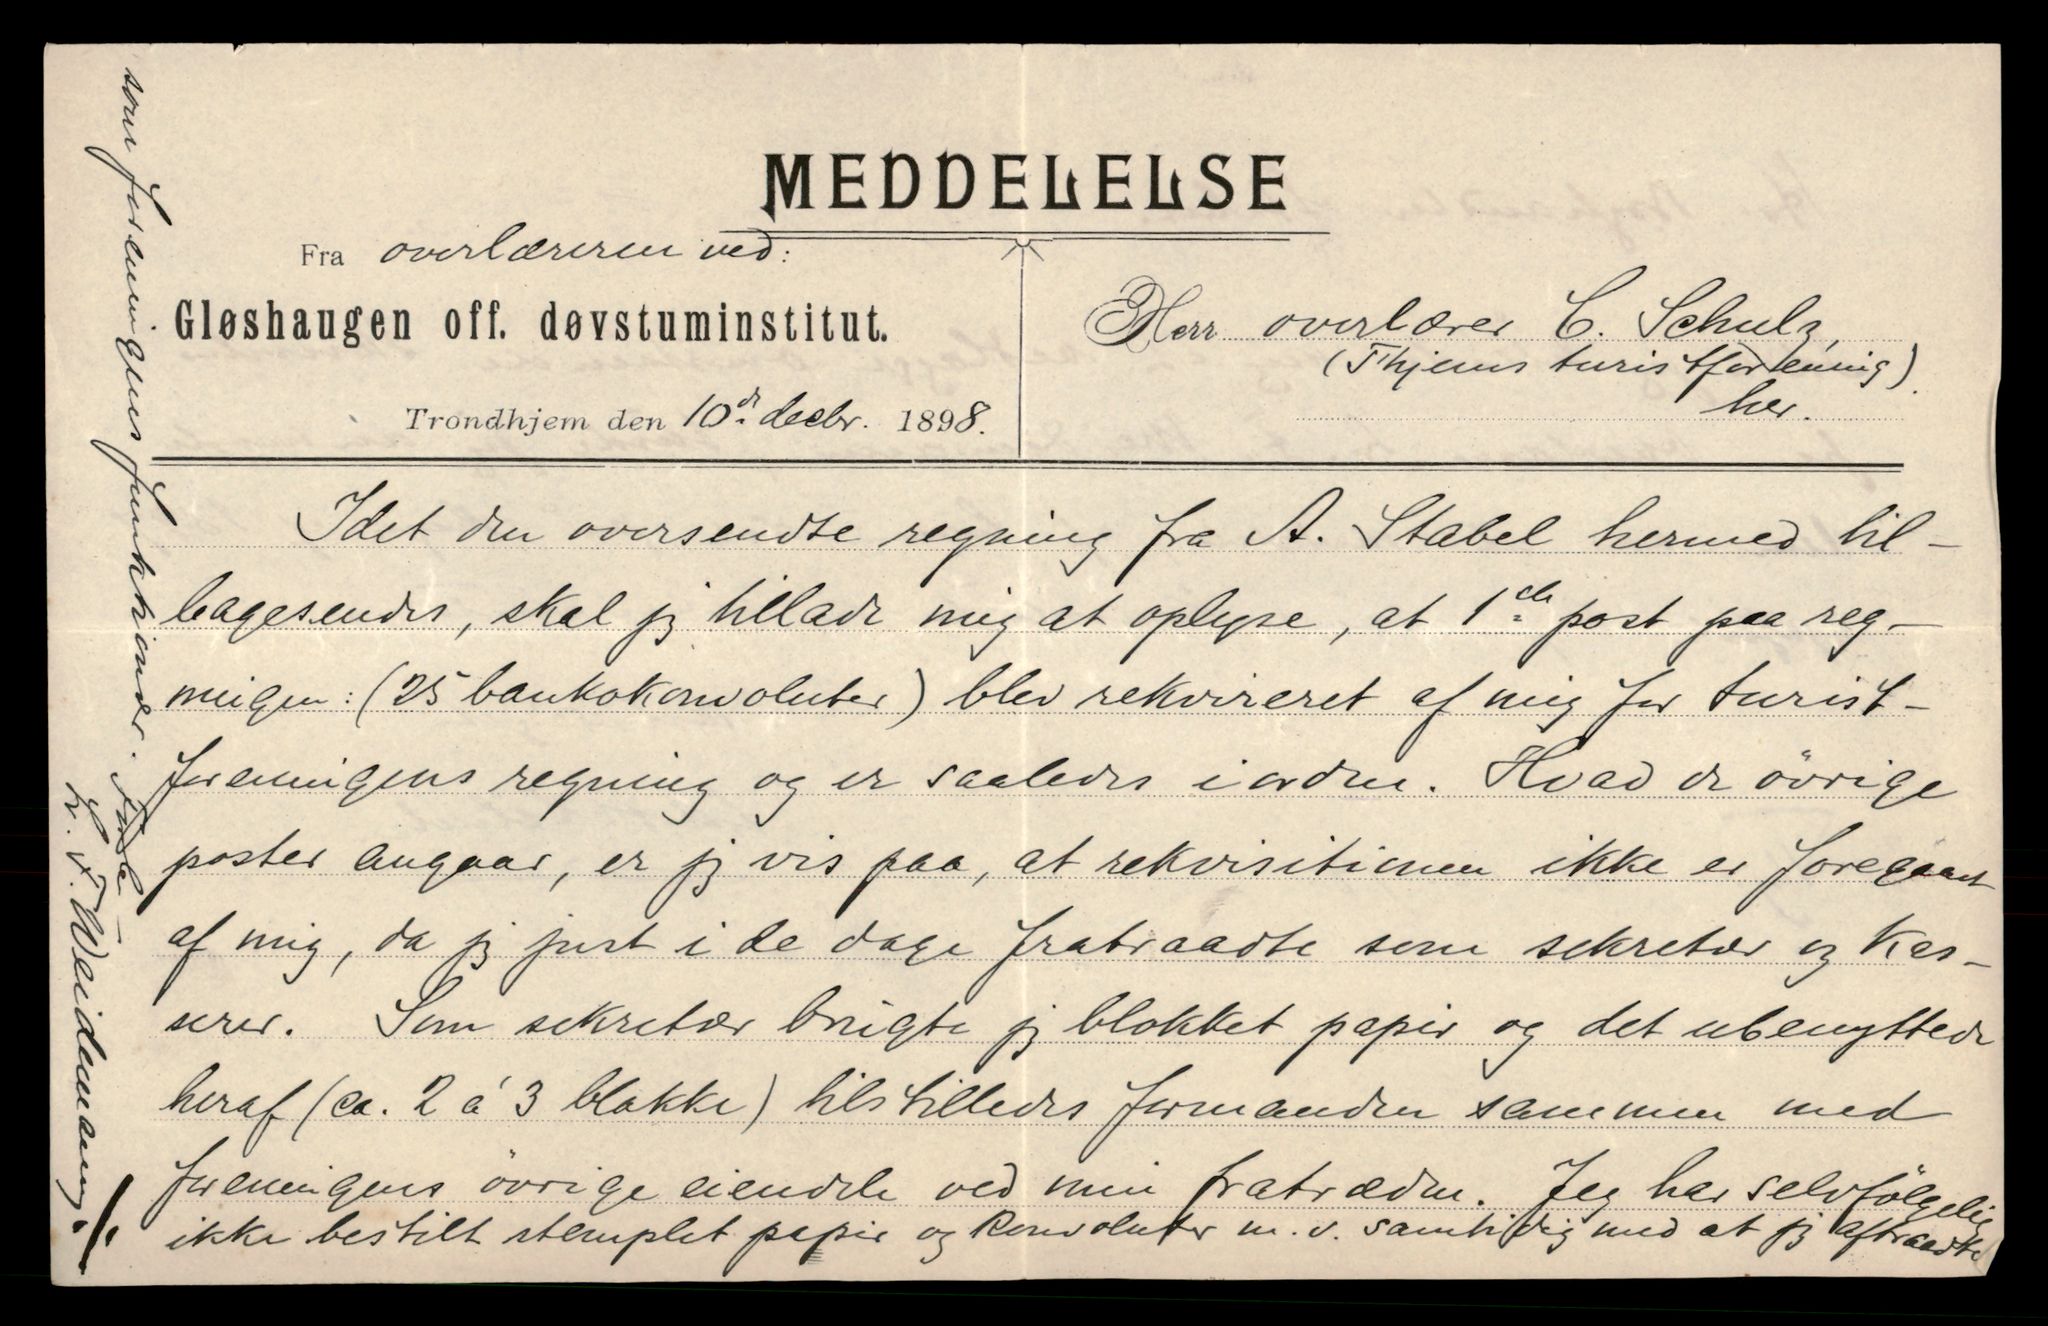 MEDDELELSE
Fra overlæreren ved:
Gløshaugen off. døvstuminstitut.
Trondhjem den 10de decbr. 1898.
Herr overlærer C. Schulz,
(Thjems turistforening)
her.
Idet den oversendte regning fra A. Stabel hermed til-
bagesendes, skal jeg tillade mig at oplyse, at 1ste post paa reg-
ningen: (25 bankokonvoluter) blev rekvireret af mig for turist-
foreningens regning og er saaledes i orden. Hvad de övrige
poster angaar, er jeg vis paa, at rekvisitionen ikke er foregaaet
af mig, da jeg just i de dage fratraadte som sekretær og kas-
serer. Som sekretær brugte jeg blokket papir og det ubenyttede
heraf (ca. 2 á 3 blokke) tilstilledes formanden sammen med
foreningens övrige eiendele ved min fratræden. Jeg har selvfölgelig
ikke bestilt stemplet papir og konvoluter m. v. samtidig med at jeg aftraadte
som foreningens funktionær.
L. F. Weidemann.